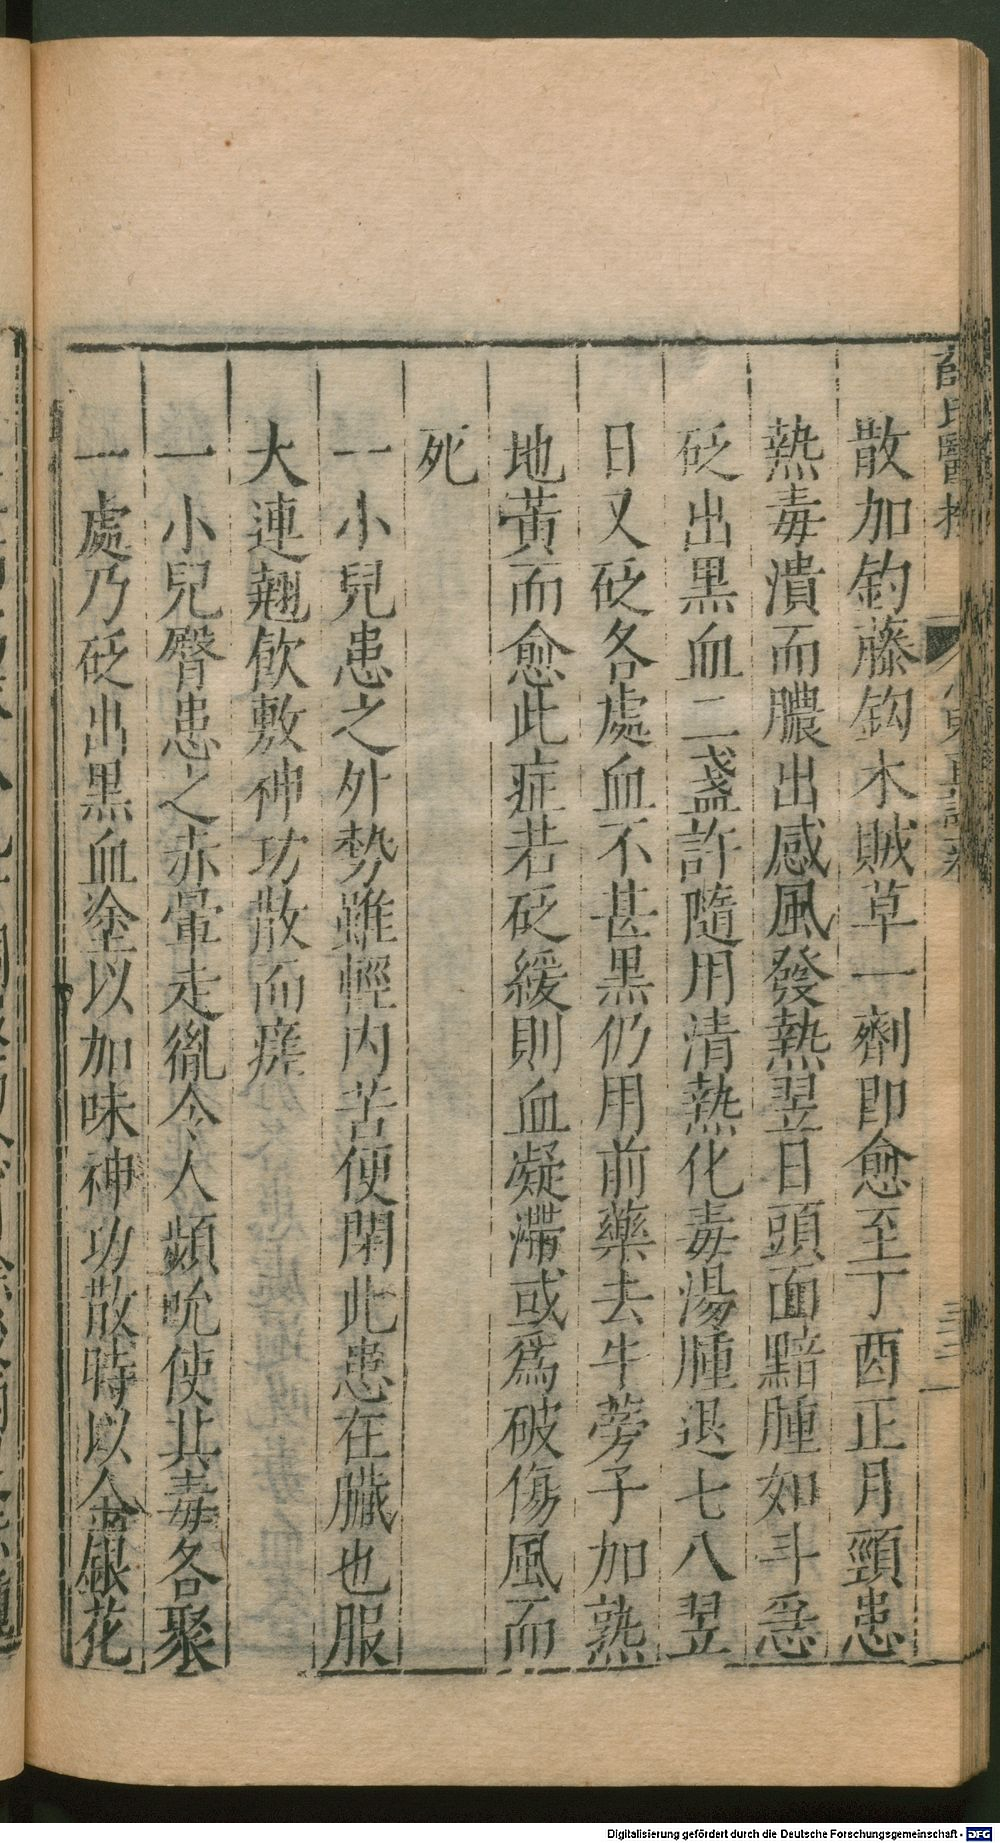 散加釣藤鈎木賊草一劑即愈至丁酉正月頸患
熱毒潰而膿出感風發熱翌日頭面黯腫如斗急
砭出黒血二盞許隨用清熱化毒湯腫退七八翌
日又砭各處血不甚黒仍用前藥去牛蒡子加熟
地黃而愈此症若砭緩則血凝滯或爲破傷風而
死
一小兒患之外勢雖輕内苦便閉此患在臟也服
大連翹飲敷神功散而痊
一小兒臀患之赤暈走彻令人頻吮使其毒各聚
一處乃砭出黒血塗以加味神功散時以金銀花
Digitalisierung gefördert durch die Deutsche Forschungsgemeinschaft - DFG